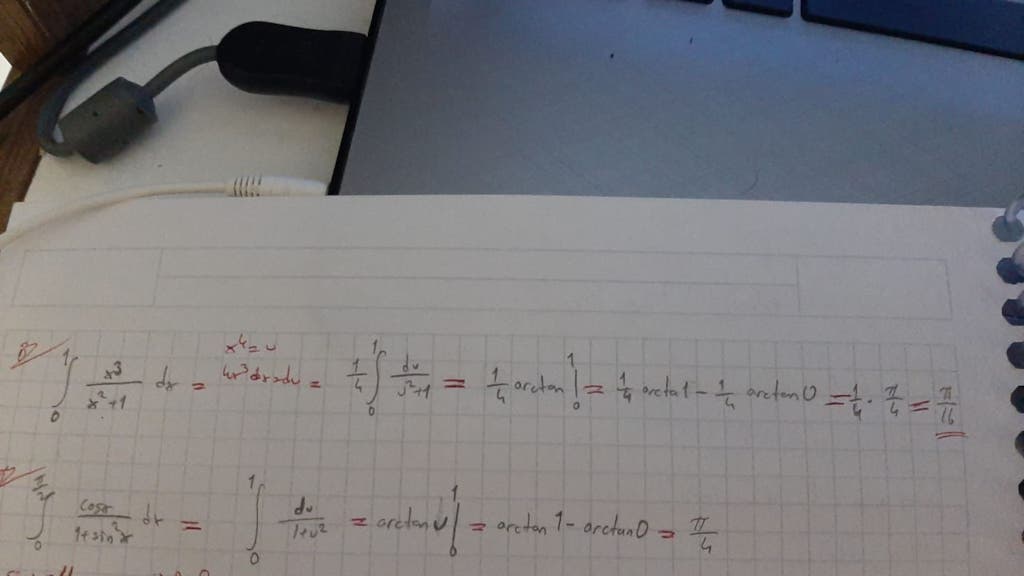 ∫₀¹ x³/(x²+1) dx = x⁴=u 4x³dx=du = 1/4 ∫₀¹ du/(u²+1) = 1/4 arctan |₀¹ = 1/4 arcta1 - 1/4 arctan0 = 1/4 · π/4 = π/16
∫₀ cosx/(1+sin²x) dx = ∫₀¹ du/(1+u²) = arctan u |₀¹ = arctan1 - arctan0 = π/4